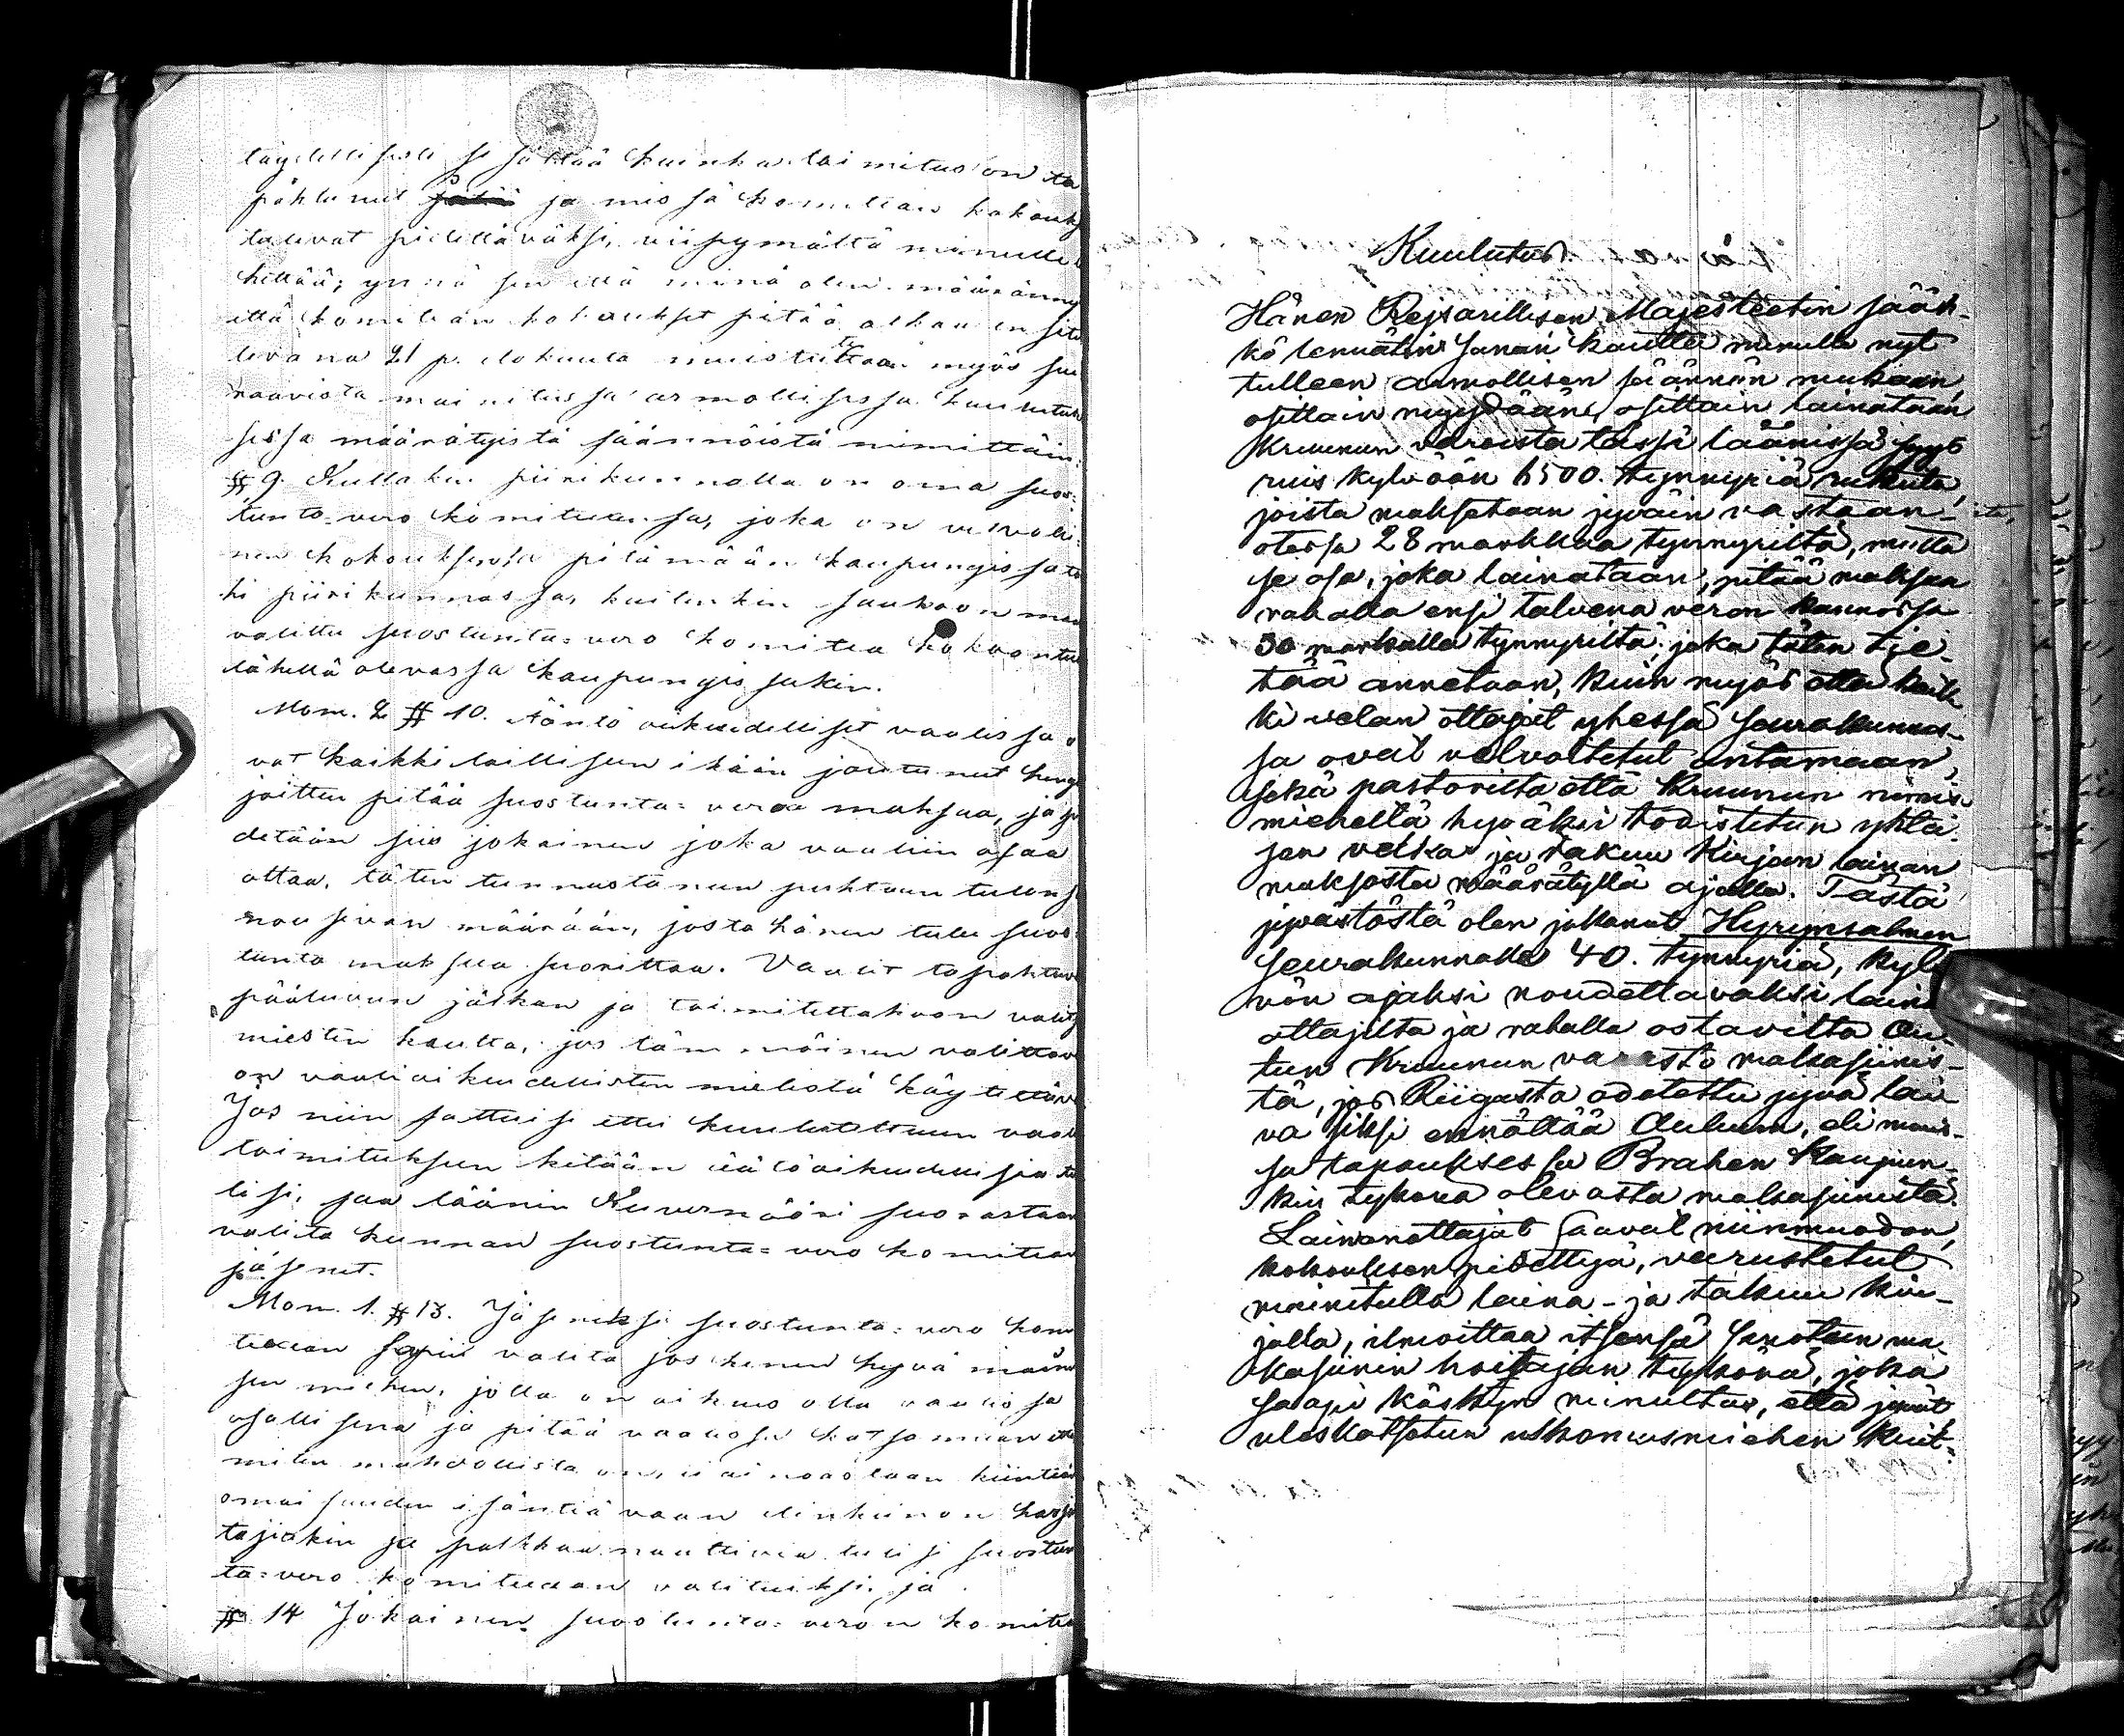 täydellisesti se sisältää kuinka toimitus on ta
pahtunut ja missä komitean kokouks
tulevat pidettäväksi, viipymättä minulle l
hettää; ynnä sen että minä olen määränny
että komitean kokoukset pitää alkaa en site
levana 21 p. elokuuta muistutettaan myös seu
raavista mainitussa armollisessa kuulutuk
sessa määrätyistä säännöistä nimittäin:
§ 9. Kullakin piirikunnalla on oma suos-
tunto-vero komiteansa, joka on velvoli-
nen kokouksensa pitämään kaupungissa ta
hi piirikunnassa, kuitenkin saakoon maa
valittu suostunta-vero komitea kokoontu
lähellä olevassa kaupungissakin.
Mom. 2 § 10. Ääntö oikeudelliset vaalissa o
vat kaikki laillisen ikään joutunut heng
joitten pitää suostunta-veroa maksaa, ja p
detään siis jokainen joka vaaliin osaa
ottaa, täten tunnustaneen puhtaan tulonsa
nousevan määrään, josta hänen tulee suos
tunta maksua suorittaa. Vaalit tapahtuu
pääluvun jälkeen ja toimitettakoon valits
miesten kautta, jos tämmöinen valittav
on vaalioikeudellisten mielestä käytettäv
Jos niin sattuisi ettei kuulutettuun vaal
toimituksen ketään äätöoikeudellisia tu
lisi, saa läänin Kuvernööri suorastaan
valita kunnan suostunta-vero komitean
jäsenet.
Mom. 1. § 13. Jäseneksi suostunta-vero kom
teaan sopii valita jos kenen hyvä main
sen miehen, jolla on oikeus olla vaalissa
osallisena ja pitää vaalissa katsoman että
miten mahdollista on, ei ainoastaan kiinteä
omaisuuden isäntiä vaan elinkeinon harjo
tajiakin ja palkkaa nauttivia tulisi suostun
ta-vero komiteaan valituiksi, ja
§ 14 Jokainen suostunta-veron komitea
Kuulutus.
Hänen Keisarillisen Majesteetin sääh-
kö lennätin Sanan kautta minulle nyt
tulleen armollisen säännön mukaan,
osittain myydään, osittain lainataan
Kruunun varoista tässä läänissä syys
ruis kylvöön 6500. tynnyriä rukiita,
joista maksetaan jyväin vastaan-
otossa 28 markkaa tynnyriltä, mutta
se osa, joka lainataan, pitää maksaa
rahalla ensi talvena veron kannossa
30 markalla tynnyriltä; joka täten tie-
tää annetaan, kuin myös että kaik
ki velan ottajat yhessä seurakunnas-
sa ovat velvoitetut antamaan,
sekä pastorilta että Kruunun nimis
miehellä hyväksi todistetun yhtei-
sen velka ja takuu kirjan lainan
maksosta määrätyllä ajalla. Tästä
jyvästöstä olen jakanut Hyrynsalmen
seurakunnalle 40. tynnyriä, kyl
vön ajaksi noudettavaksi lain
ottajilta ja rahalla ostavilta Ou-
lun Kruunun varasto makasiinis-
ta, jos Riigasta odotettu jyvä lai
va siksi ennättää Ouluun, eli muus-
sa tapauksessa Brahen Kaupun-
kin tykönä olevasta makasiinista.
Lainanottajat saavat niinmuodon,
kokouksen pidettyä, varustetut
mainitulla laina- ja takuu kir-
jalla, ilmoittaa itsensä Senoteen ma-
kasiinin hoitajan tykönä, joka
saapi käskyn minulta, että jyvät
uloskatsotun uskomusmiehen kuit-